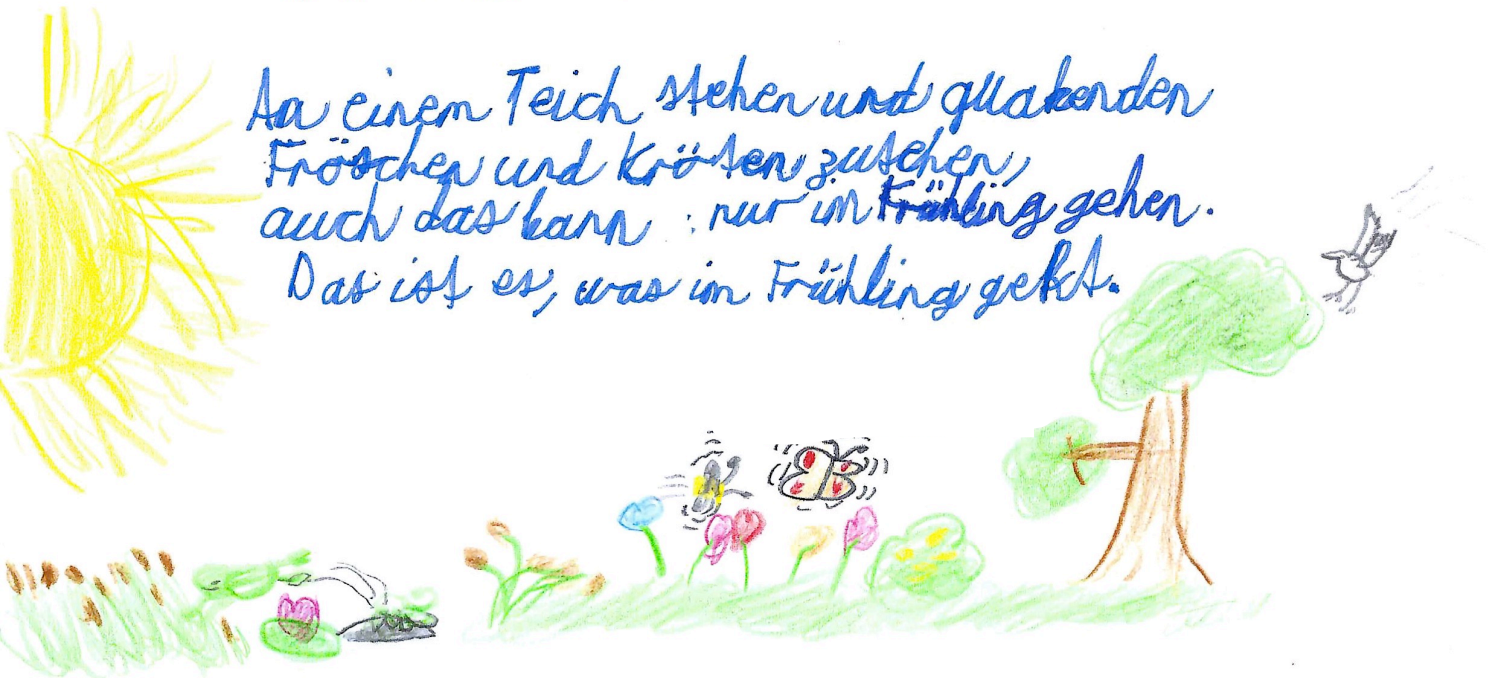 An einem Teich stehen und quakenden
Fröschen und Kröten zusehen,
auch das kann nur im Frühling gehen.
Das ist es, was im Frühling geht.